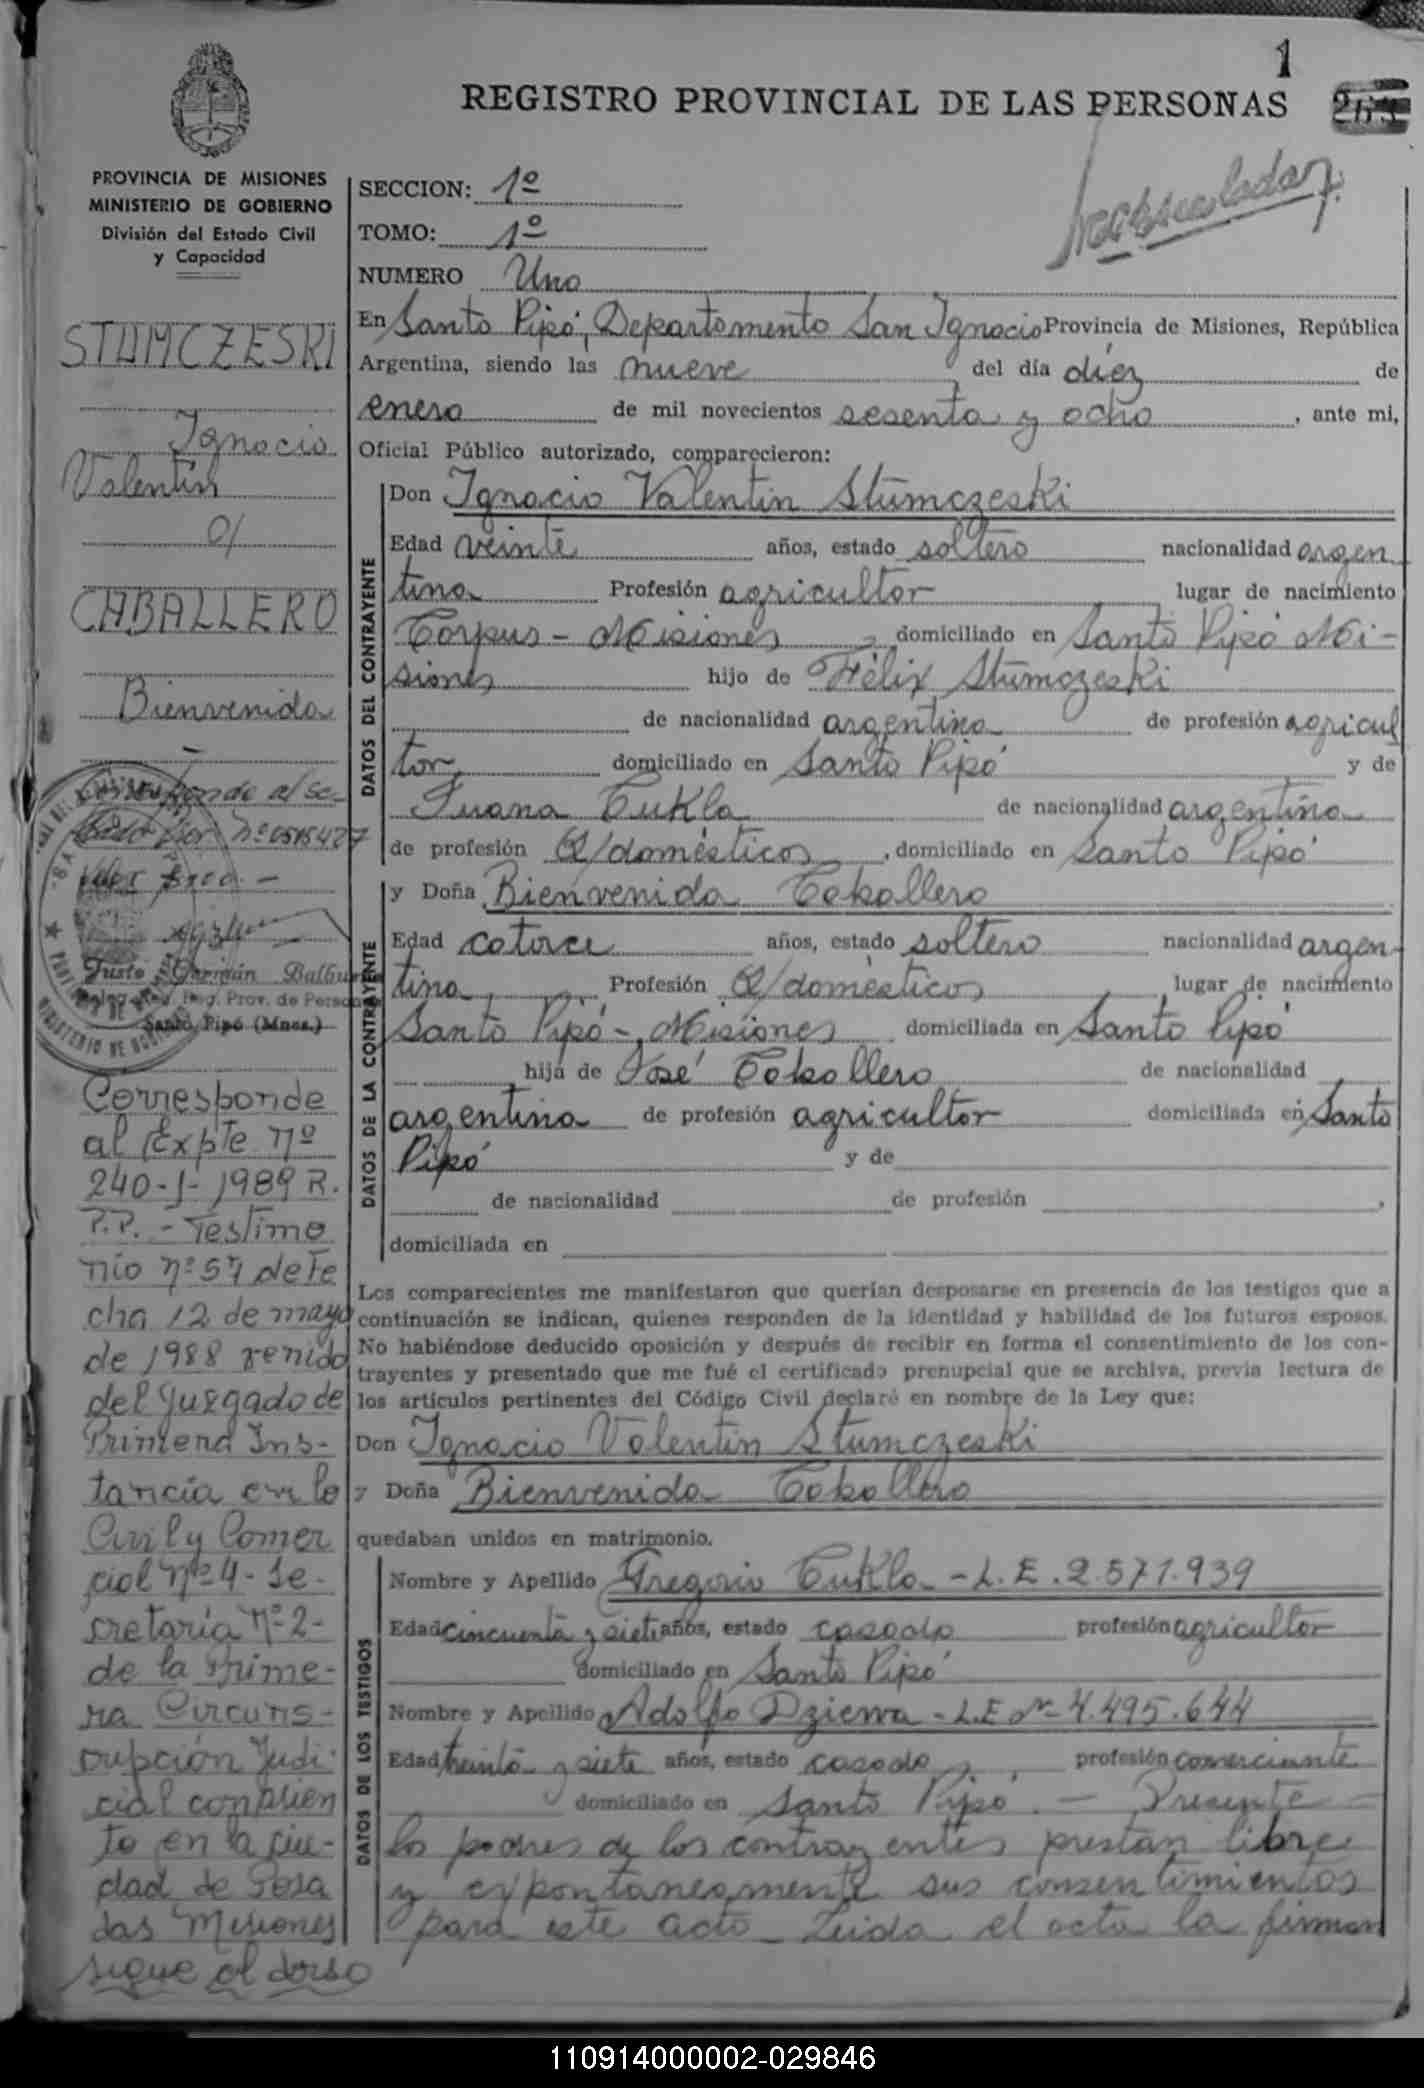 1
REGISTRO PROVINCIAL DE LAS PERSONAS
PROVINCIA DE MISIONES
MINISTERIO DE GOBIERNO
División del Estado Civil
y Capacidad
STUMCZESKI
Ignacio
Valentín
c/
CABALLERO
Bienvenida
Corresponde al se-
Nº 0515427
Justo Germán
Reg. Prov. de Personas
Santo Pipó (Mnes.)
Corresponde
al Expte. Nº
240-J-1989 R.
P.P. - Testimo
nio nº 57 de fe
cha 12 de mayo
de 1988 venido
del Juzgado de
Primera Ins-
tancia en lo
Civil y Comer
cial nº 4 - Se-
cretaría Nº 2-
de la Prime-
ra Circuns-
cripción Judi-
cial con asien
to en la ciu-
dad de Posa
das Misiones
sigue al dorso
SECCION: 1º
TOMO: 1º
NUMERO Uno
En Santo Pipó, Departamento San Ignacio Provincia de Misiones, República
Argentina, siendo las nueve del día diez de
enero de mil novecientos sesenta y ocho, ante mi,
Oficial Público autorizado, comparecieron:
DATOS DEL CONTRAYENTE
Don Ignacio Valentin Stumczeski
Edad veinte años, estado soltero nacionalidad argen
tina Profesión agricultor lugar de nacimiento
Corpus - Misiones, domiciliado en Santo Pipó Mi-
siones hijo de Félix Stumczeski
de nacionalidad argentina de profesión agricul
tor, domiciliado en Santo Pipó y de
Juana Cukla de nacionalidad argentina
de profesión Q/domésticos, domiciliado en Santo Pipó
DATOS DE LA CONTRAYENTE
y Doña Bienvenida Caballero
Edad catorce años, estado soltero nacionalidad argen-
tina, Profesión Q/domésticos, lugar de nacimiento
Santo Pipó -, Misiones domiciliada en Santo Pipó
hija de José Caballero de nacionalidad
argentina de profesión agricultor domiciliada en Santo
Pipó y de
de nacionalidad de profesión ,
domiciliada en
Los comparecientes me manifestaron que querían desposarse en presencia de los testigos que a
continuación se indican, quienes responden de la identidad y habilidad de los futuros esposos.
No habiéndose deducido oposición y después de recibir en forma el consentimiento de los con-
trayentes y presentado que me fué el certificado prenupcial que se archiva, previa lectura de
los artículos pertinentes del Código Civil declaré en nombre de la Ley que:
Don Ignacio Valentin Stumczeski
y Doña Bienvenida Caballero
quedaban unidos en matrimonio.
DATOS DE LOS TESTIGOS
Nombre y Apellido Gregorio Cukla - L.E. 2.571.939
Edad cincuenta y siete años, estado casado profesión agricultor
domiciliado en Santo Pipó
Nombre y Apellido Adolfo Dziewa - L.E Nº 4.495.644
Edad treinta y siete años, estado casado, profesión comerciante
domiciliado en Santo Pipó. - Presente
los padres de los contrayentes prestan libre
y expontaneamente sus consentimientos
para este acto - Leida el acta la firman
110914000002-029846